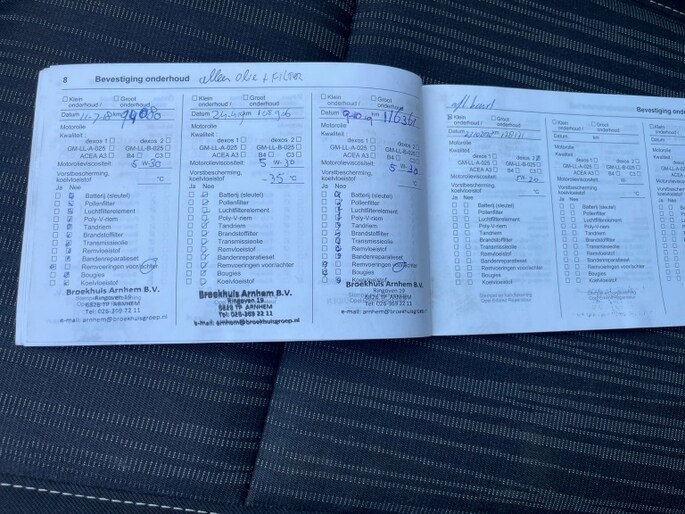 8 Bevestiging onderhoud alleen olie + FILTER
Klein onderhoud / Groot onderhoud
Datum 11-7-18 km
Motorolie
Kwaliteit
dexos 1 dexos 2
GM-LL-A-025 GM-LL-B-025
ACEA A3 B4 C3
Motorolieviscositeit: 5 W-30
Vorstbescherming, koelvloeistof °C
Ja Nee
Batterij (sleutel)
Pollenfilter
Luchtfilterelement
Poly-V-riem
Tandriem
Brandstoffilter
Transmissieolie
Remvloeistof
Bandenreparatieset
Remvoeringen voor/achter
Bougies
Koelvloeistof
Broekhuis Arnhem B.V.
Ringoven 19
6826 TP ARNHEM
Tel: 026-369 22 11
e-mail: arnhem@broekhuisgroep.nl
Klein onderhoud / Groot onderhoud
Datum km 108906
Motorolie
Kwaliteit
dexos 1 dexos 2
GM-LL-A-025 GM-LL-B-025
ACEA A3 B4 C3
Motorolieviscositeit: 5 W-30
Vorstbescherming, koelvloeistof -35 °C
Ja Nee
Batterij (sleutel)
Pollenfilter
Luchtfilterelement
Poly-V-riem
Tandriem
Brandstoffilter
Transmissieolie
Remvloeistof
Bandenreparatieset
Remvoeringen voor/achter
Bougies
Koelvloeistof
Broekhuis Arnhem B.V.
Ringoven 19
6826 TP ARNHEM
Tel: 026-369 22 11
e-mail: arnhem@broekhuisgroep.nl
Klein onderhoud / Groot onderhoud
Datum 9-10-19 km 116361
Motorolie
Kwaliteit
dexos 1 dexos 2
GM-LL-A-025 GM-LL-B-025
ACEA A3 B4 C3
Motorolieviscositeit: 5 W-30
Vorstbescherming, koelvloeistof °C
Ja Nee
Batterij (sleutel)
Pollenfilter
Luchtfilterelement
Poly-V-riem
Tandriem
Brandstoffilter
Transmissieolie
Remvloeistof
Bandenreparatieset
Remvoeringen voor/achter
Bougies
Koelvloeistof
Broekhuis Arnhem B.V.
Ringoven 19
6826 TP ARNHEM
Tel: 026-369 22 11
e-mail: arnhem@broekhuisgroep.nl
Bevestiging onde
Klein onderhoud / Groot onderhoud
Datum km
Motorolie
Kwaliteit
dexos 1 dexos 2
GM-LL-A-025 GM-LL-B-025
ACEA A3 B4 C3
Motorolieviscositeit:
Vorstbescherming, koelvloeistof °C
Ja Nee
Batterij (sleutel)
Pollenfilter
Luchtfilterelement
Poly-V-riem
Tandriem
Brandstoffilter
Transmissieolie
Remvloeistof
Bandenreparatieset
Remvoeringen voor/achter
Bougies
Koelvloeistof
Klein onderhoud / Groot onderhoud
Datum km
Motorolie
Kwaliteit
dexos 1 dexos 2
GM-LL-A-025 GM-LL-B-025
ACEA A3 B4 C3
Motorolieviscositeit:
Vorstbescherming, koelvloeistof °C
Ja Nee
Batterij (sleutel)
Pollenfilter
Luchtfilterelement
Poly-V-riem
Tandriem
Brandstoffilter
Transmissieolie
Remvloeistof
Bandenreparatieset
Remvoeringen voor/achter
Bougies
Koelvloeistof